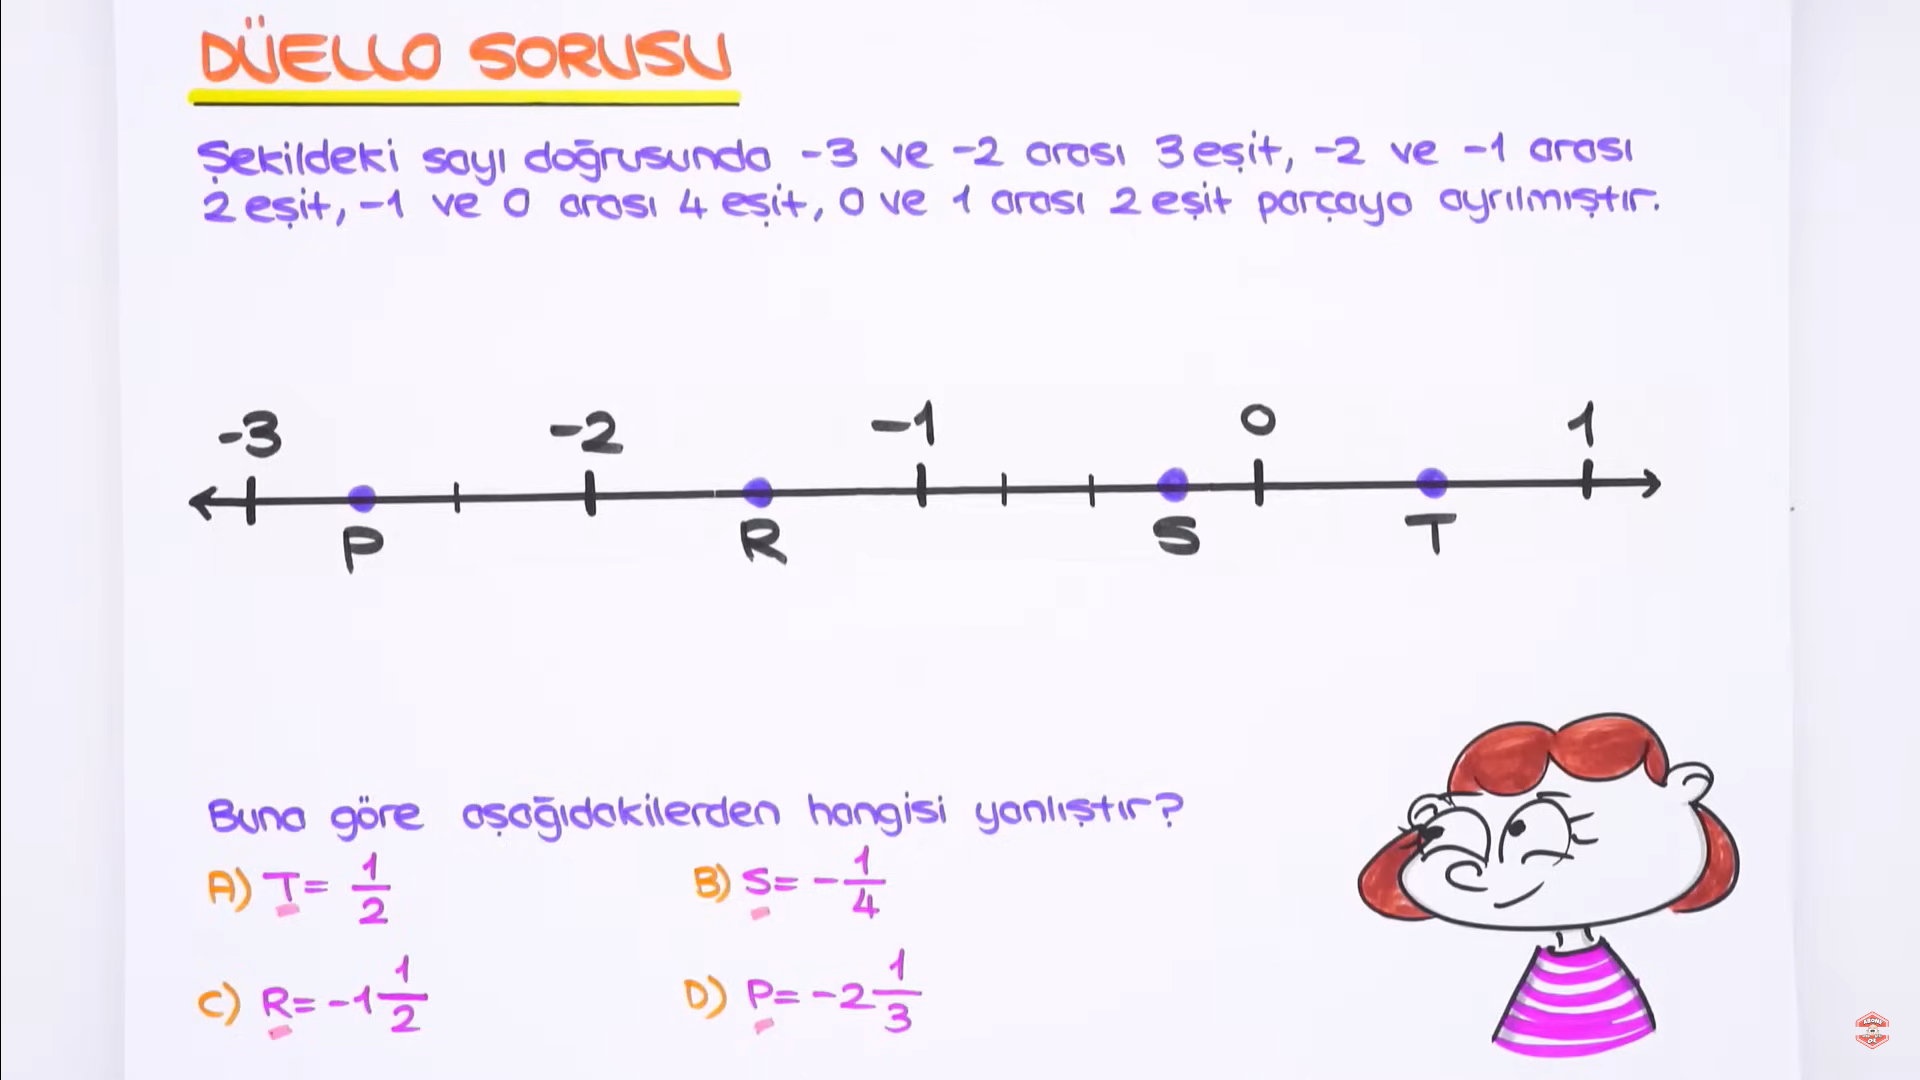 DÜELLO SORUSU
Şekildeki sayı doğrusunda -3 ve -2 arası 3 eşit, -2 ve -1 arası
2 eşit, -1 ve 0 arası 4 eşit, 0 ve 1 arası 2 eşit parçaya ayrılmıştır.
-3 -2 -1 0 1
P R S T
Buna göre aşağıdakilerden hangisi yanlıştır?
A) T= 1/2 B) S= -1/4
C) R= -1 1/2 D) P= -2 1/3
ABONE
OL